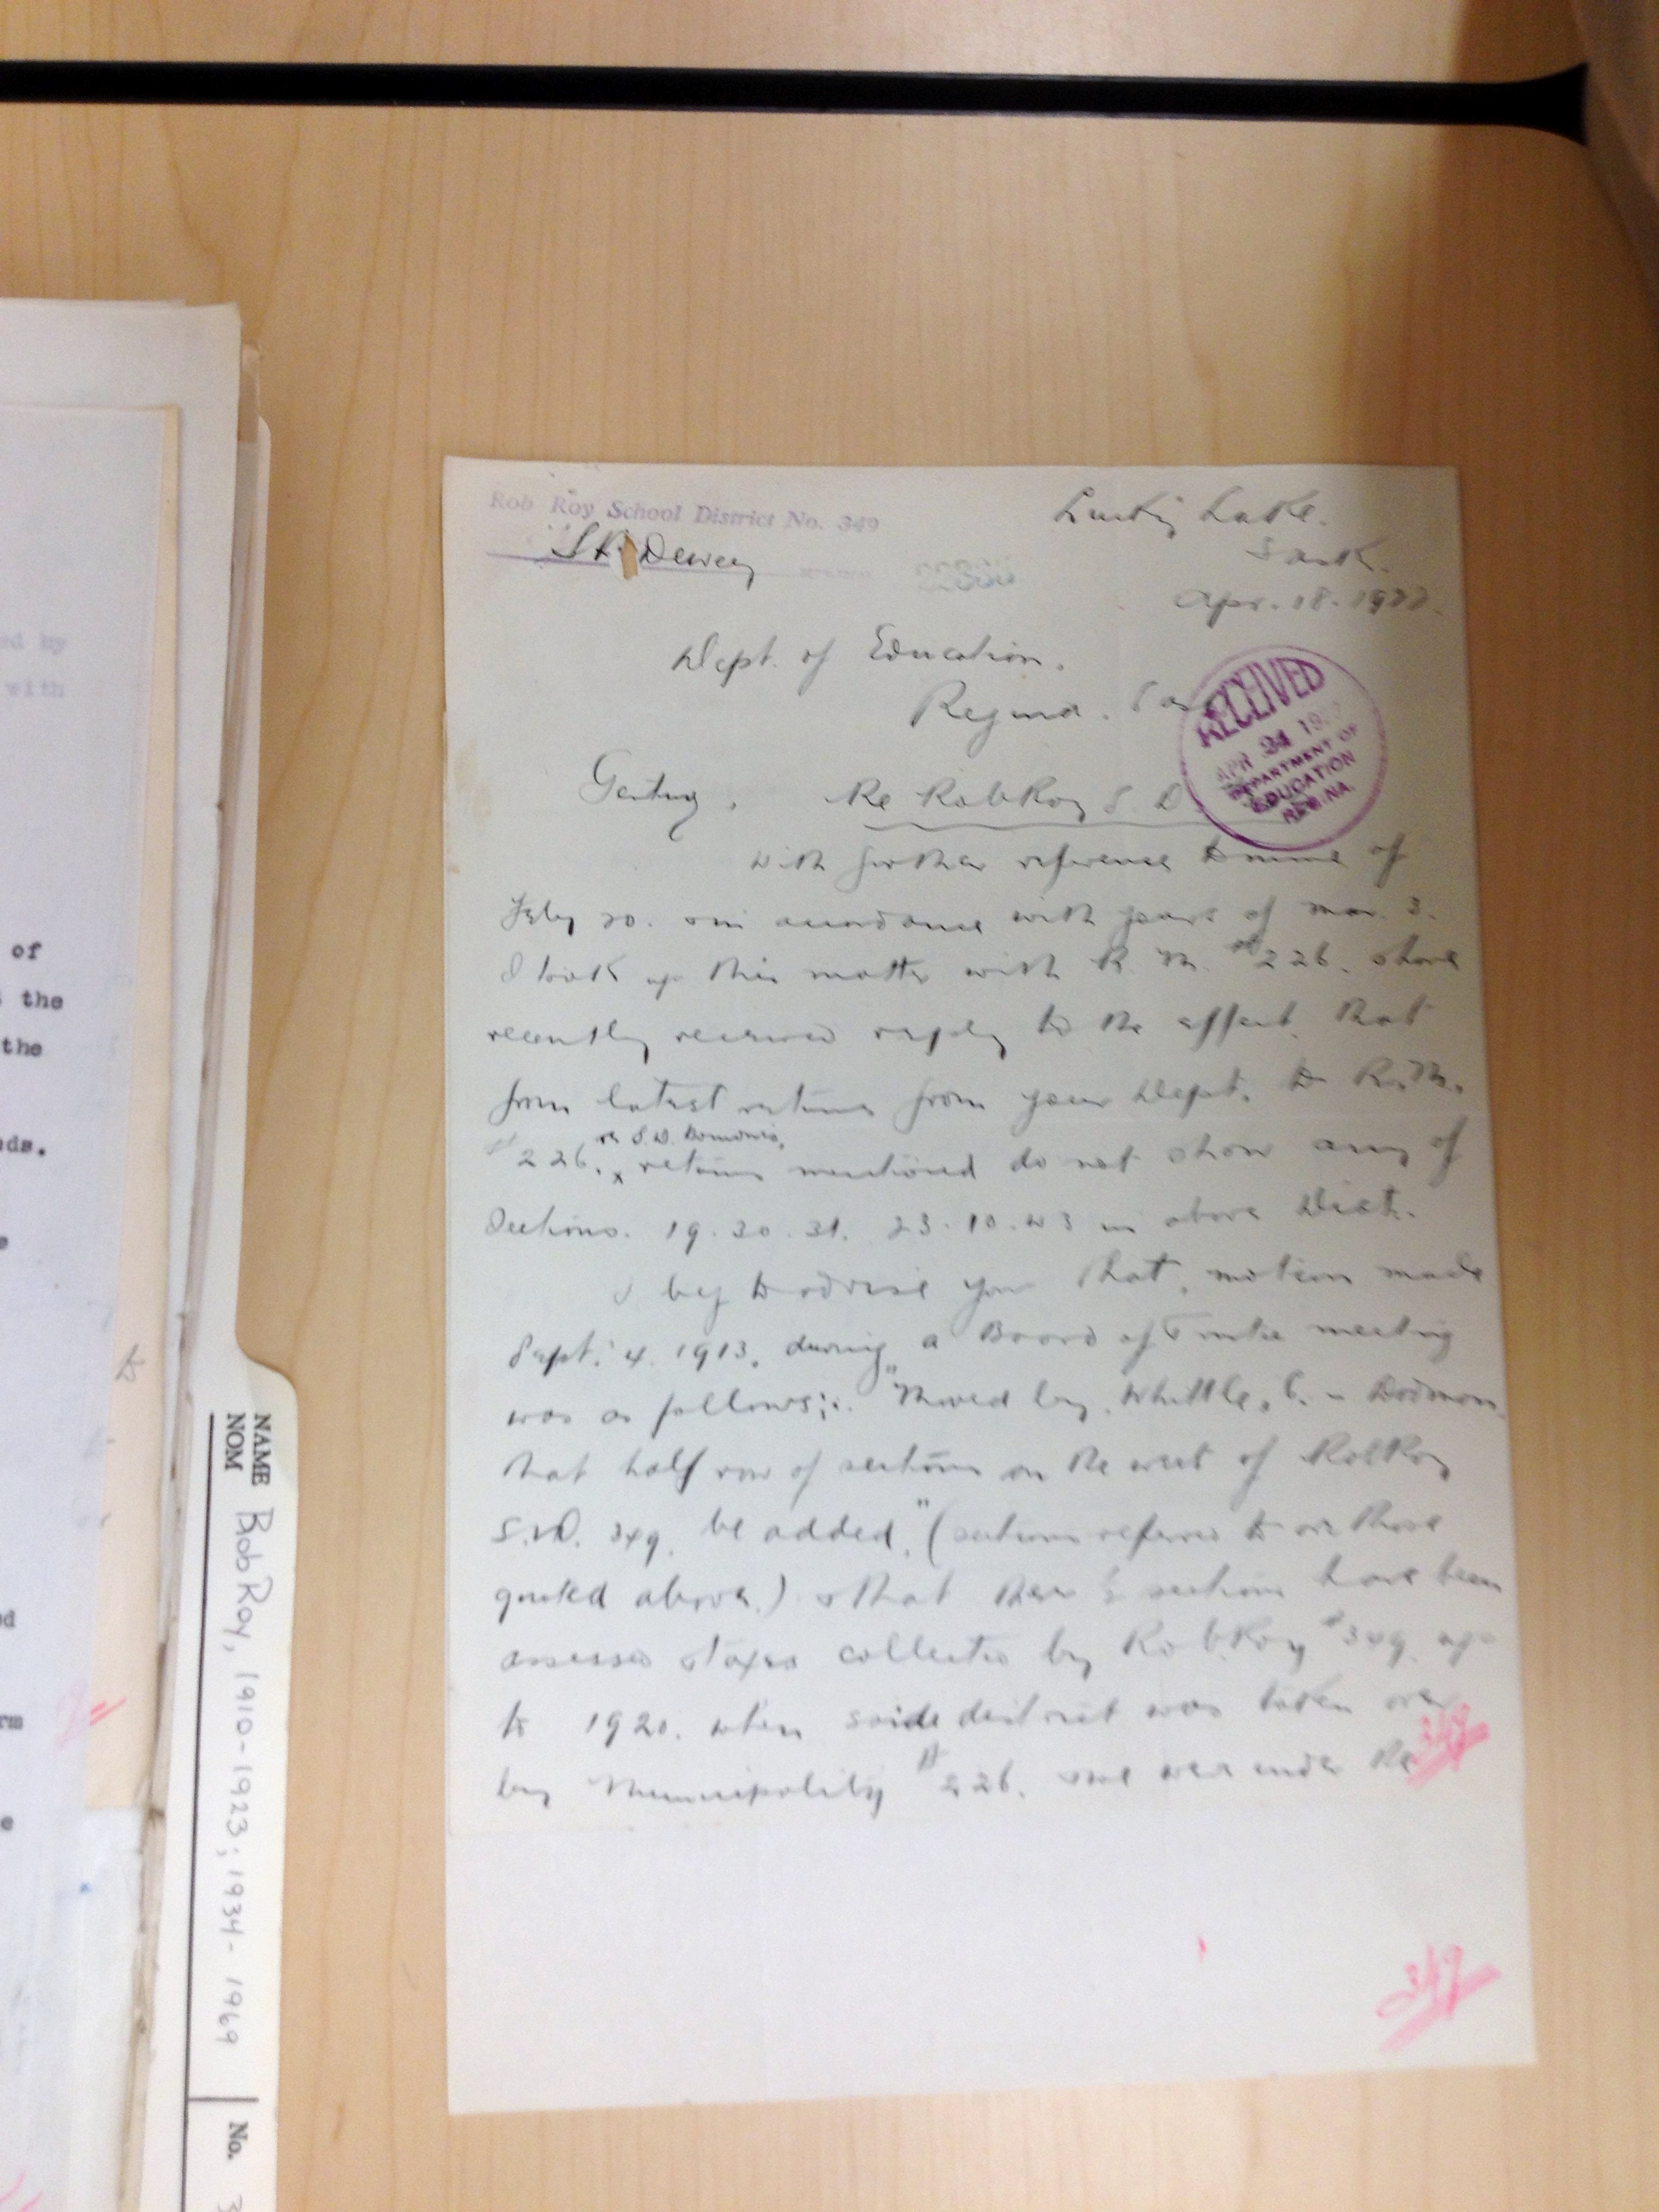 Rob Roy School District No. 349
Dewey
Lucky Lake.
Sask.
Apr. 18. 1922.
Dept. of Education.
Regina.
RECEIVED
APR 24 19
DEPARTMENT OF
EDUCATION
REGINA.
Re RobRoy S. D.
With further reference to mine of
Feby 20. in accordance with yours of Mar. 3.
I took up this matter with R. M. # 226. & have
recently received reply to the effect. that
from latest returns from your Dept. to R. M.
# 226. x returns mentioned do not show any of
re S.D. Boundaries.
Sections. 19. 30. 31. 23. 10. W 3 in above Dist.
I beg to advise you that, motion made
Sept. 4. 1913. during a Board of Trustee meeting
was as follows;:. "Moved by, Whittle, C. -
that half row of sections on the west of RobRoy
S.D. 349. be added." (sections referred to are those
quoted above.) & that these ½ sections have been
assessed & taxes collected by RobRoy # 349. up
to 1920. when said district was taken over
by Municipality # 226. & we were under the
349
349
ed by
with
of
the
the
nds.
rm
to
NAME
NOM
Rob Roy, 1910-1923; 1934-1969
No.
3